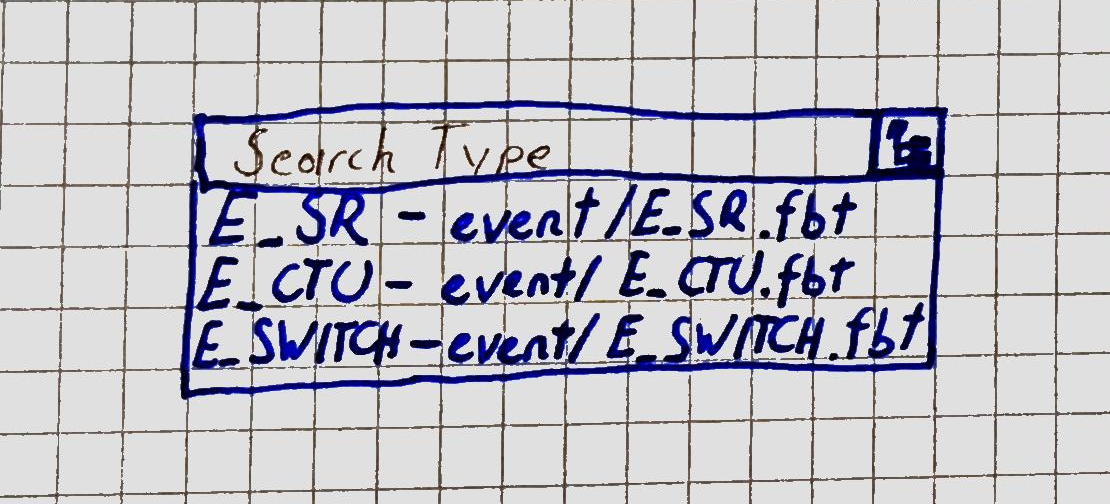 Search Type
E_SR - event/E_SR.fbt
E_CTU - event/E_CTU.fbt
E_SWITCH - event/E_SWITCH.fbt